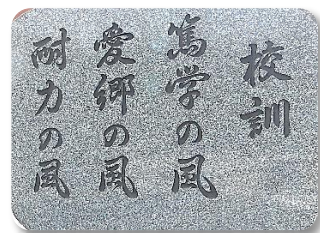 校訓
篤学の風
愛郷の風
耐力の風